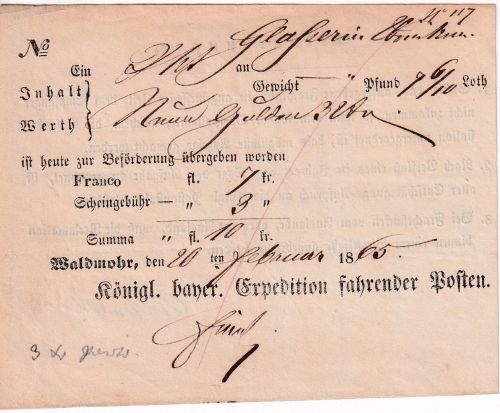 No 117
Ein an
Inhalt Gewicht " Pfund 9 6/10 Loth
Werth Neun Gulden 32 kr.
ist heute zur Beförderung übergeben worden
Franco fl. 7 kr.
Scheingebühr " 3 "
Summa " fl. 10 kr.
Waldmohr, den 20 ten Februar 1865
Königl. bayer. Expedition fahrender Posten.
3 kr